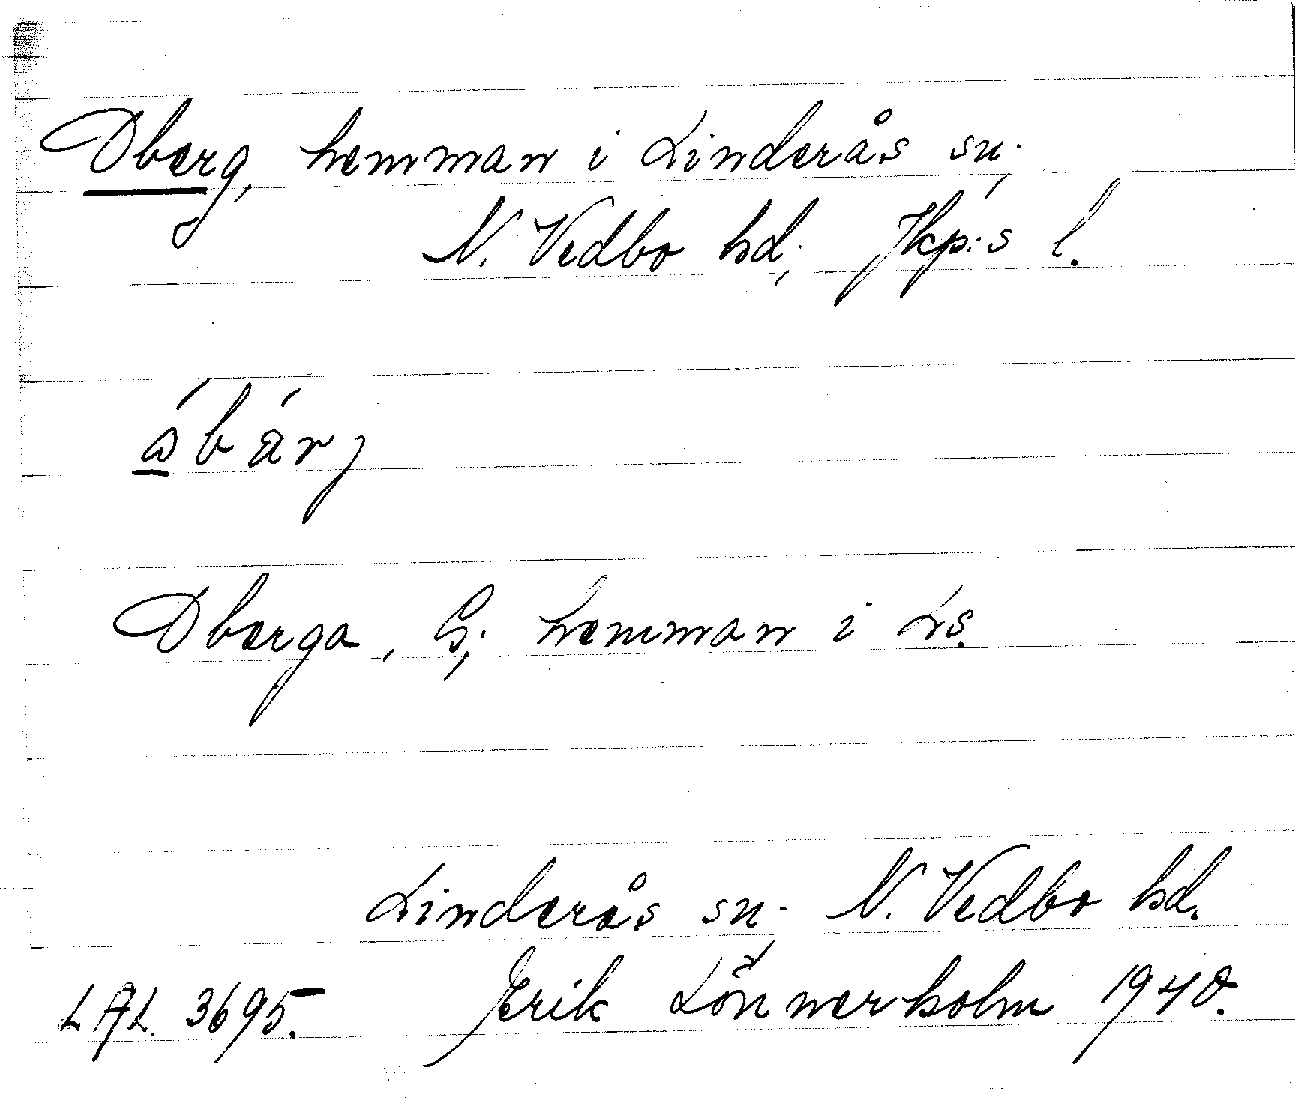 Oberg, hemman i Linderås sn.
N. Vedbo hd; Jkp:s l.
ώbärj
Oberga, G; hemman i Ls.
Linderås sn. N. Vedbo hd.
LAL. 3695. Erik Lönnerholm 1940.